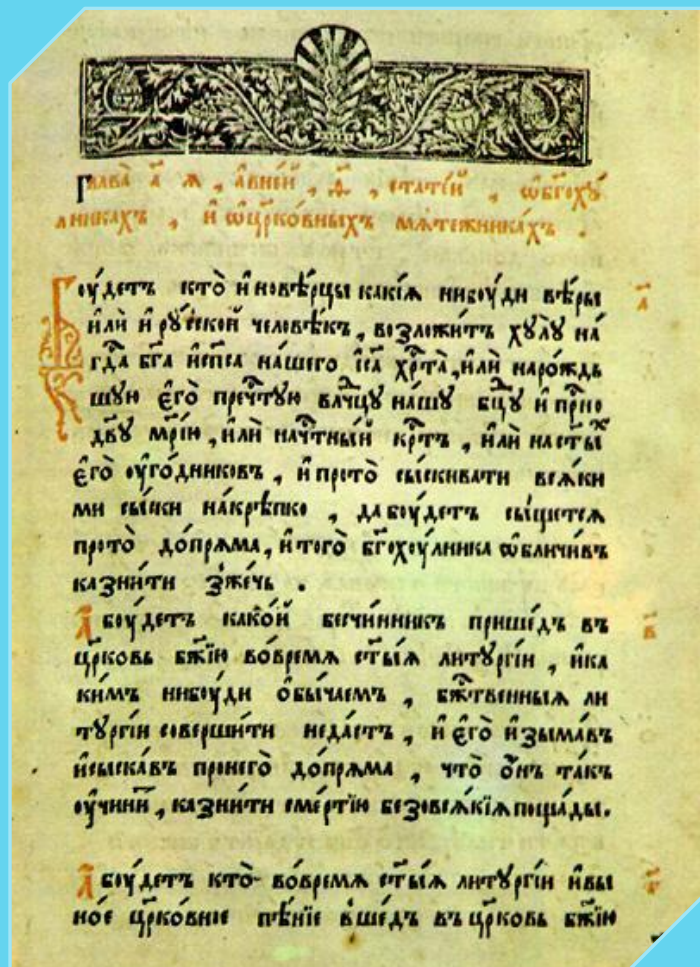 Глава҄ а҃ я, а҆вне́й, ѳ҃, стате́й, ѡ҆бг҃охꙋ́
лникахъ, и҆ ѡ҆цр҃ко́вныхъ мѧте́жника́хъ.
Боу́детъ кто̀ и҆новѣ́рцы какі́ѧ нибоу́ди вѣ́ры
и҆лѝ и҆ рꙋ́сской человѣ́къ, возложи́тъ хꙋлꙋ̀ на́
гд҃а бг҃а и҆сп҃са на́шего і҆с҃а хр҃та̀, и҆лѝ наро́ждь
шꙋю є҆го̀ преч҃тꙋю влч҃цꙋ на́шꙋ бц҃ꙋ и҆ прⷭ҇но
дв҃ꙋ мр҃і́ю, и҆лѝ нач҃тны́й кр҃тъ, и҆лѝ наст҃ыⷯ
є҆го̀ оу҆го́дниковъ, и҆ прото̀ сы́скивати всѧ́ки
ми сы́ски на́крѣпко, да боу́детъ сы́щетсѧ
прото̀ до́прѧма, и҆ того̀ бг҃охоу́лника ѡ҆бличи́въ
казни́ти зже́чь.
А боу́детъ како́й бесчи́нникъ прише́дъ въ
цр҃ковь бж҃ію во́времѧ ст҃ы́ѧ литꙋргі́и, и҆ка
ки́мъ нибоу́ди ѻ҆бы́чаемъ, бж҃твенныѧ ли
тꙋргі́и соверши́ти неда́стъ, и҆ є҆го̀ и҆зыма́въ
и҆сыска́въ пронего̀ до́прѧма, что̀ ѻ҆́нъ та́къ
оу҆чини́тъ, казни́ти сме́ртїю безовсѧ́кїѧ поща́ды.
А боу́детъ кто̀ во́времѧ ст҃ы́ѧ литꙋргі́и и҆вы
но́е цр҃ко́вное пѣ́нїе вше́дъ въ цр҃ковь бж҃їю
а҃
в҃